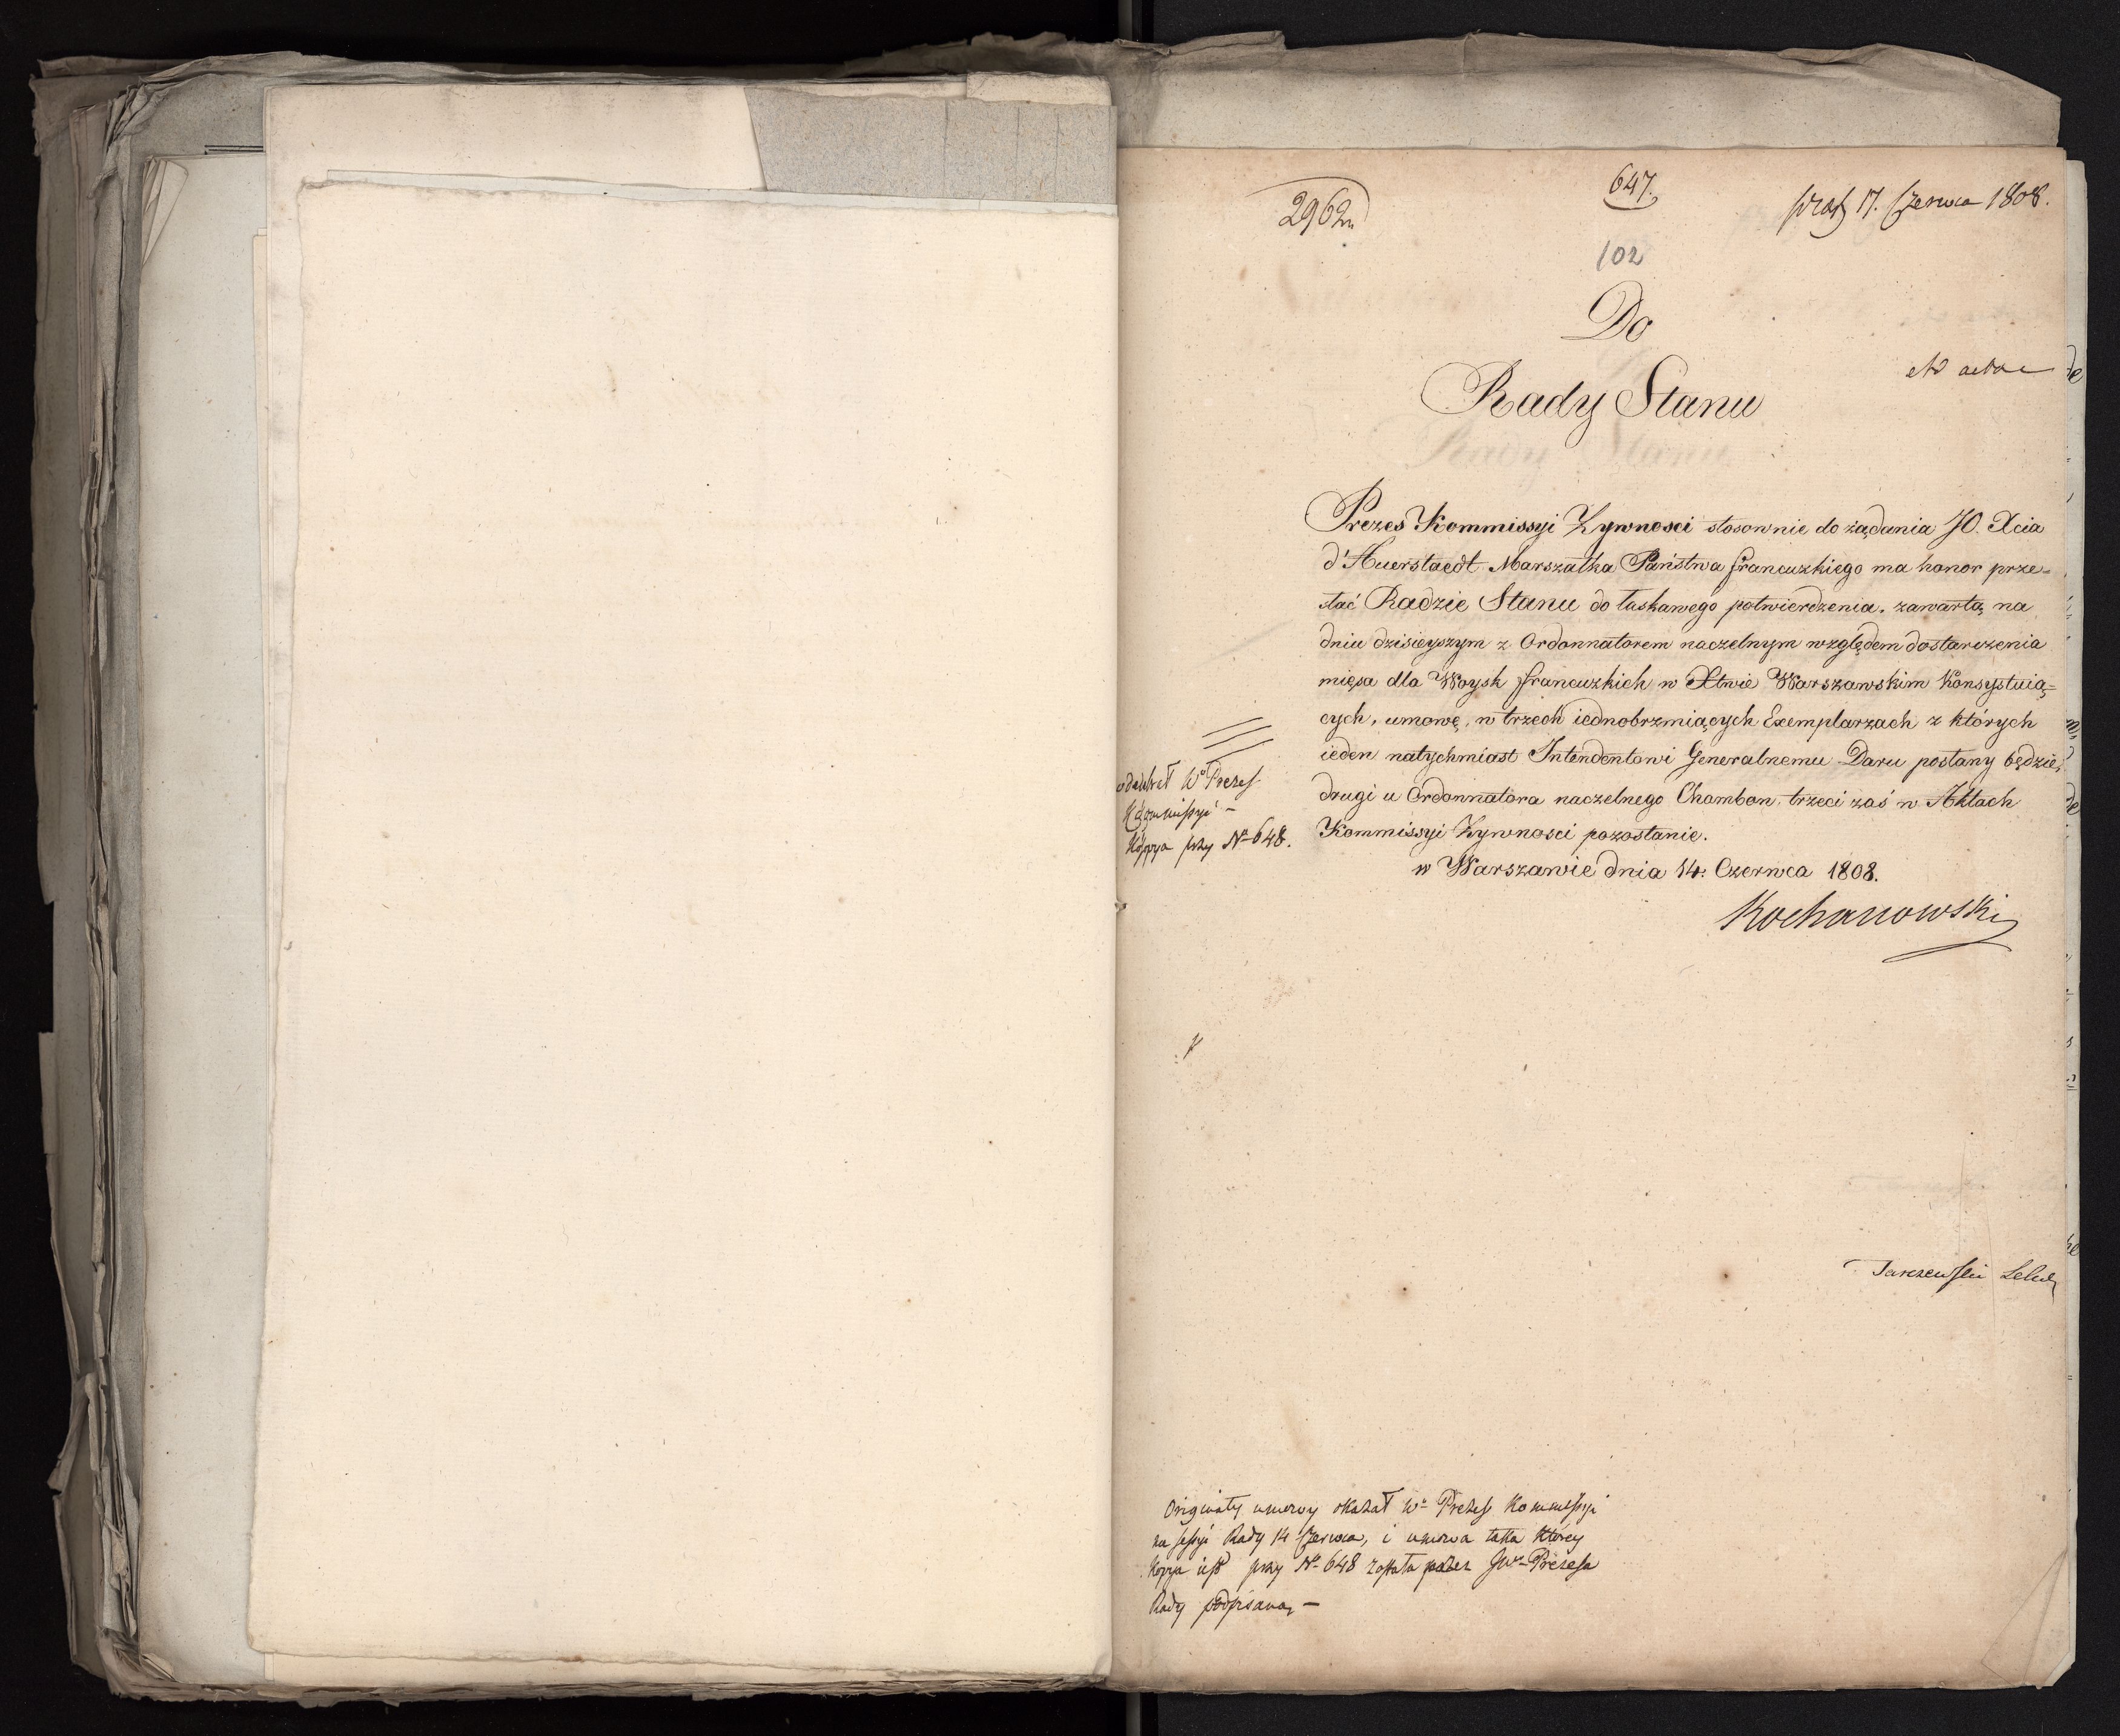 2962
647.
praes 17. Czerwca 1808.
102
Do
Ad acta
Rady Stanu
Prezes Kommissyi Zywnosci stosownie do żądania JO. Xcia
d'Auerstaedt Marszałka Państwa francuzkiego ma honor prze=
słać Radzie Stanu do łaskawego potwierdzenia, zawartą na
dniu dzisieyszym z Ordonnatorem naczelnym względem dostarczenia
mięsa dla Woysk francuzkich w Xtwie Warszawskim Konsystuią=
cych, umowę, w trzech iednobrzmiących Exemplarzach z których
ieden natychmiast Intendentowi Generalnemu Daru posłany będzie,
drugi u Ordonnatora naczelnego Chambon, trzeci zaś w Aktach
Kommissyi Zywnosci pozostanie.
w Warszawie dnia 14. Czerwca 1808.
Kochanowski
odebrał Wº Prezes
Kommissyi –
Kopya przy Nº 648.
Originały umowy okazał Wº Prezes Kommissyi
na sessyi Rady 14 Czerwca, i umowa takα którey
Kopya iest przy Nº 648 została przez JWº Prezesa
Rady podpisaną –